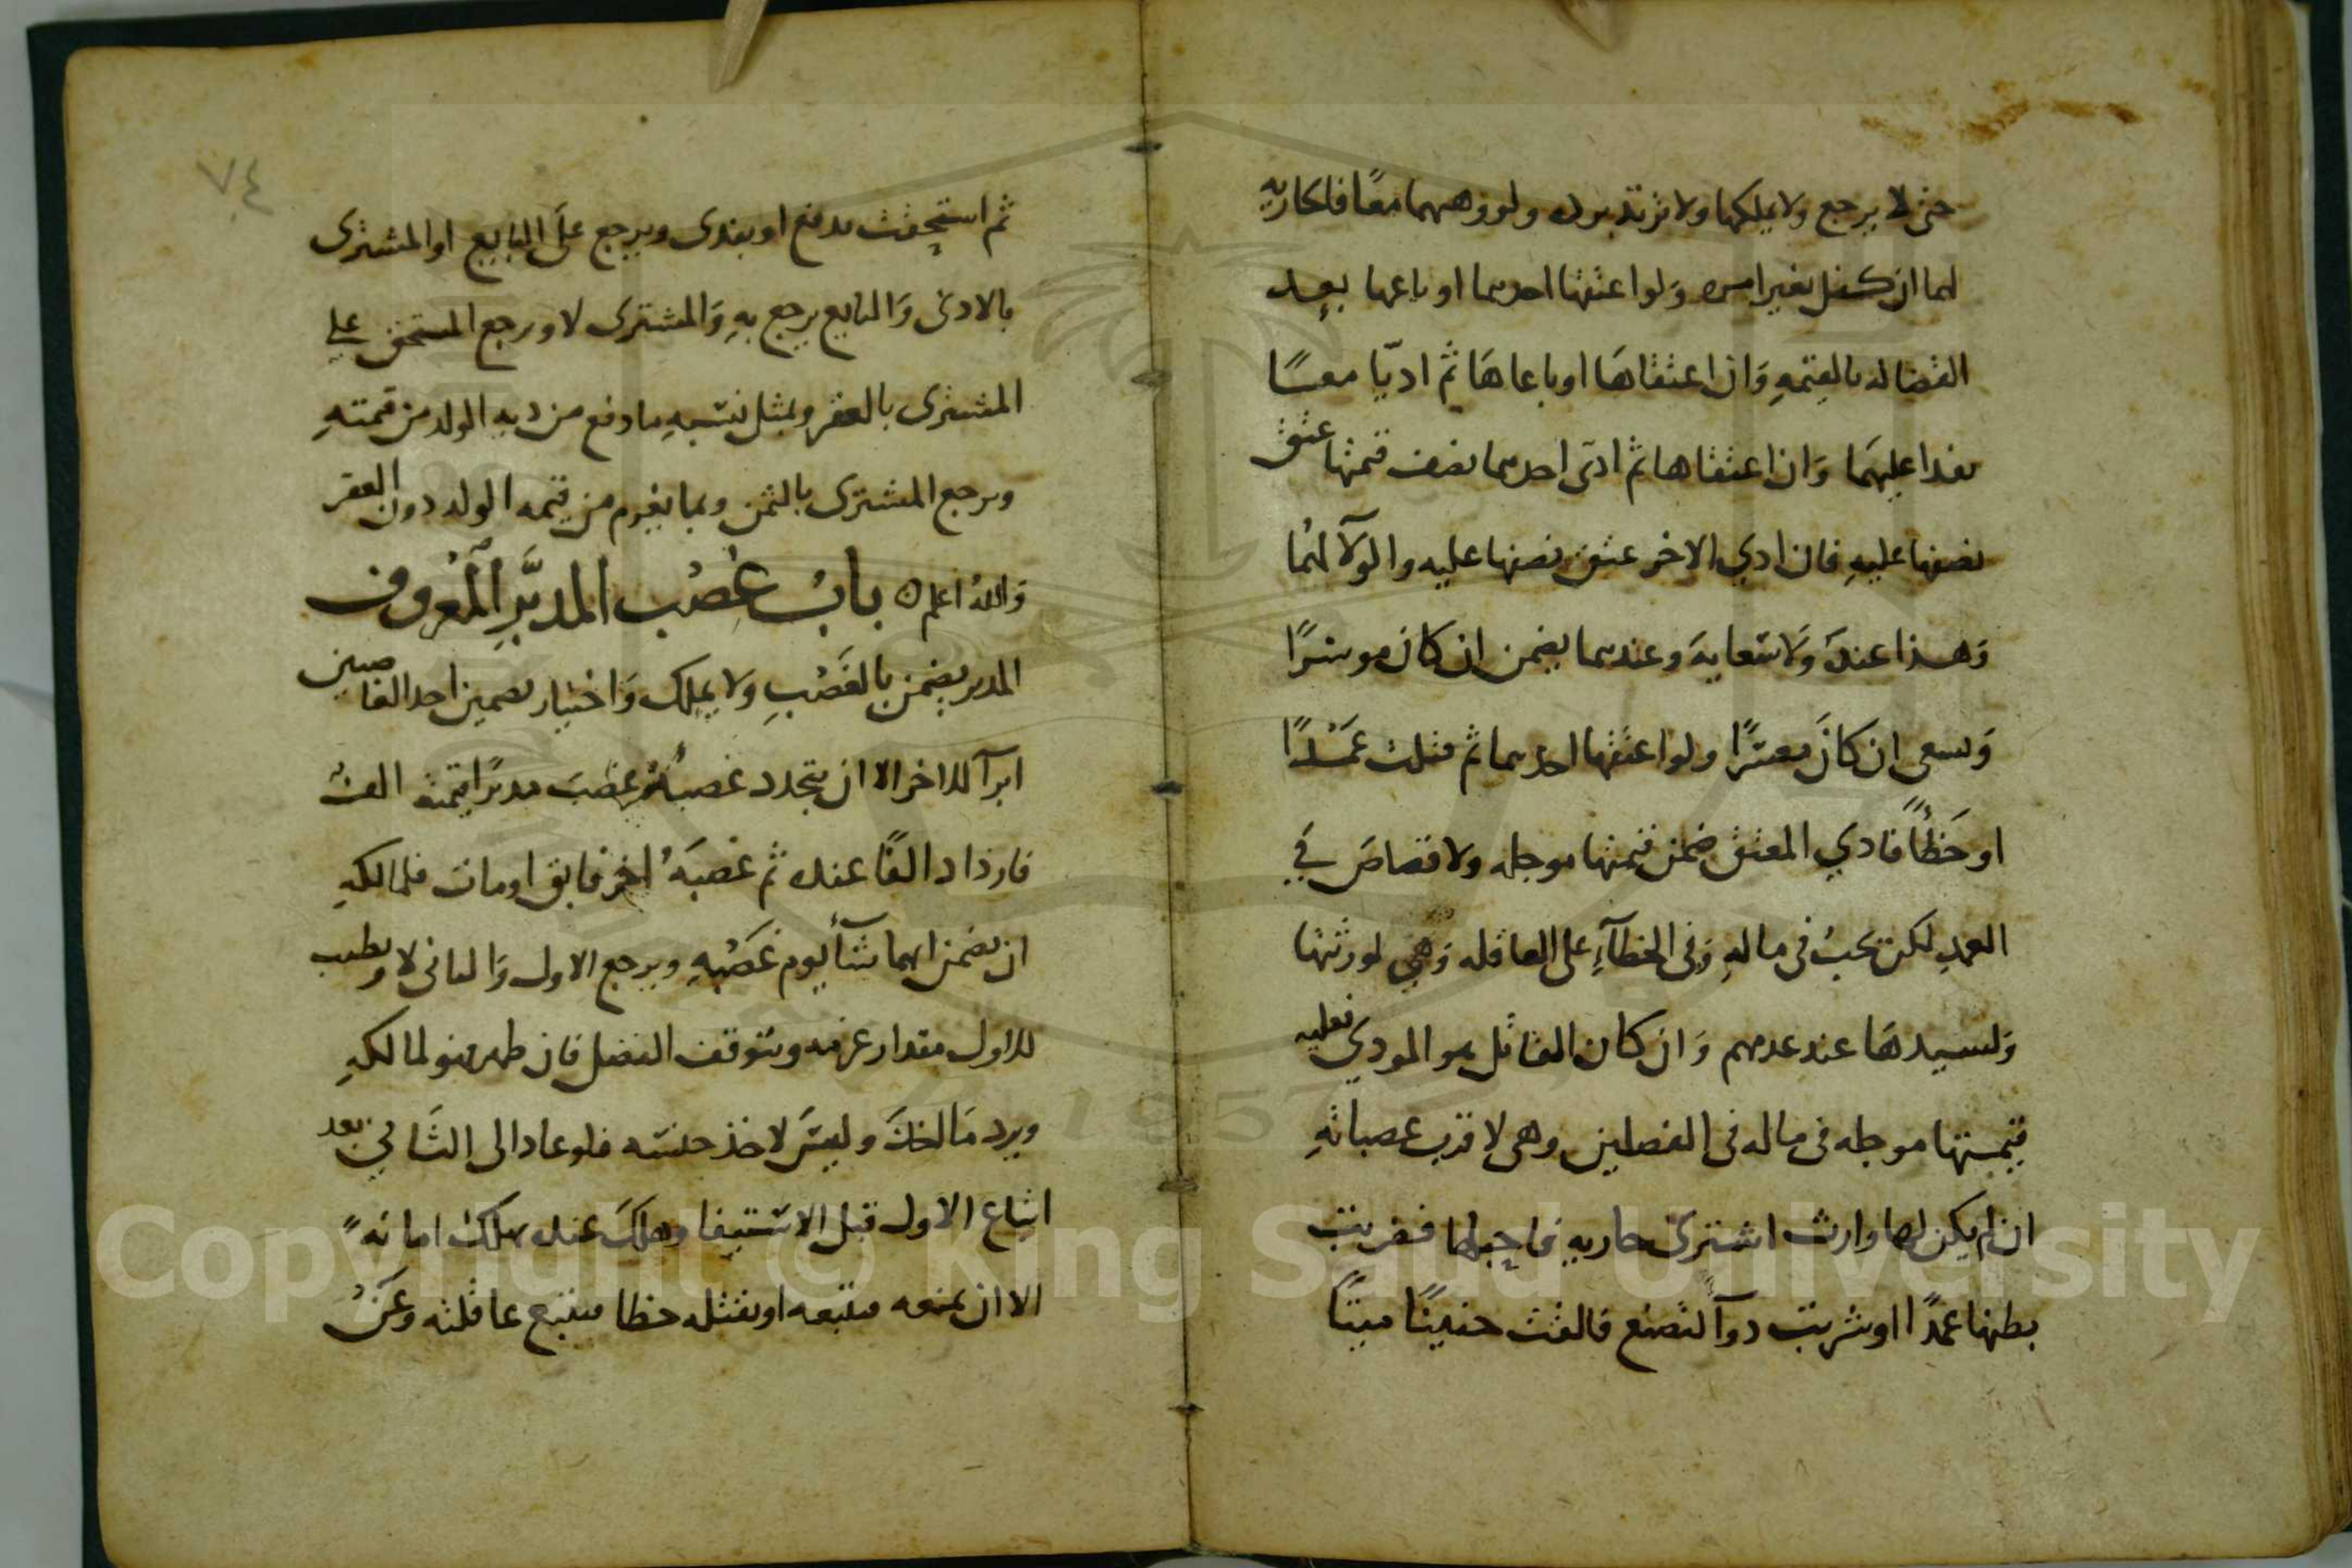 حتى لا يرجع ولا يملكها ولا ترتد برده ولو وهبهما معا فلكا ربه
لما ان كفل بغير امره ولو اعتقها احدهما او باعها بعد
القضاله بالقيمه وان اعتقاها او باعاها ثم اديا معسا
نفدا عليهما وان اعتقاها ثم ادى احدهما نصف قيمتها عتق
نصفها عليه فان ادي الاخر عتق نصفها عليه والولآ لهما
وهذا عنده ولا سعايه وعندهما يضمن ان كان موسرًا
وسعى ان كان معسرًا ولو اعتقها احدهما ثم قتلت عمدًا
او خطأً فادي المعتق ضمن قيمتها موجله ولا قصاص في
العمد لكن تجب في ماله وفي الخطآء على العاقله وهي لورثتها
ولسيدها عند عدمهم وان كان القاتل هو المودي فعليه
قيمتها موجله في ماله في الفصلين وهي لاقرب عصباته
ان لم يكن لها وارث اشترى جاريه فاحبلها فضربت
بطنها عمدًا او شربت دوآ لتضع فالقت جنينًا ميتًا
٧٤
ثم استحقت يدفع او يفدى ويرجع على البايع او المشترى
بالادنى والبايع يرجع به والمشترى لا ورجع المستحق على
المشترى بالعقر وبمثل نسبه ما دفع من ديه الولد من قيمته
ويرجع المشترى بالثمن وبما يغرم من قيمه الولد دون العقر
والله اعلم ه باب غصب المدبر المعروف
المدبر يضمن بالغصب ولا يملك واختيار تضمين احد الغاصبين
ابرآ للاخر الا ان يتجدد غصبه غصب مدبرًا قيمته الف
فازداد الفًا عنده ثم غصبه اخر فابق او مات فلمالكه
ان يضمن ايهما شآ يوم غصبه ويرجع الاول والثاني لا ويطيب
للاول مقدار غرمه ويتوقف الفضل فان ظهر فهو لمالكه
ويرد ما اخذ وليس لاخذ حبسه فلو عاد الى الثاني بعد
اتباع الاول قبل الاستيفا وهلك عنده يهلك امانةً
الا ان يمنعه فيتبعه او يقتله خطا فيتبع عاقلته وعن
Copyright © King Saud University
1957